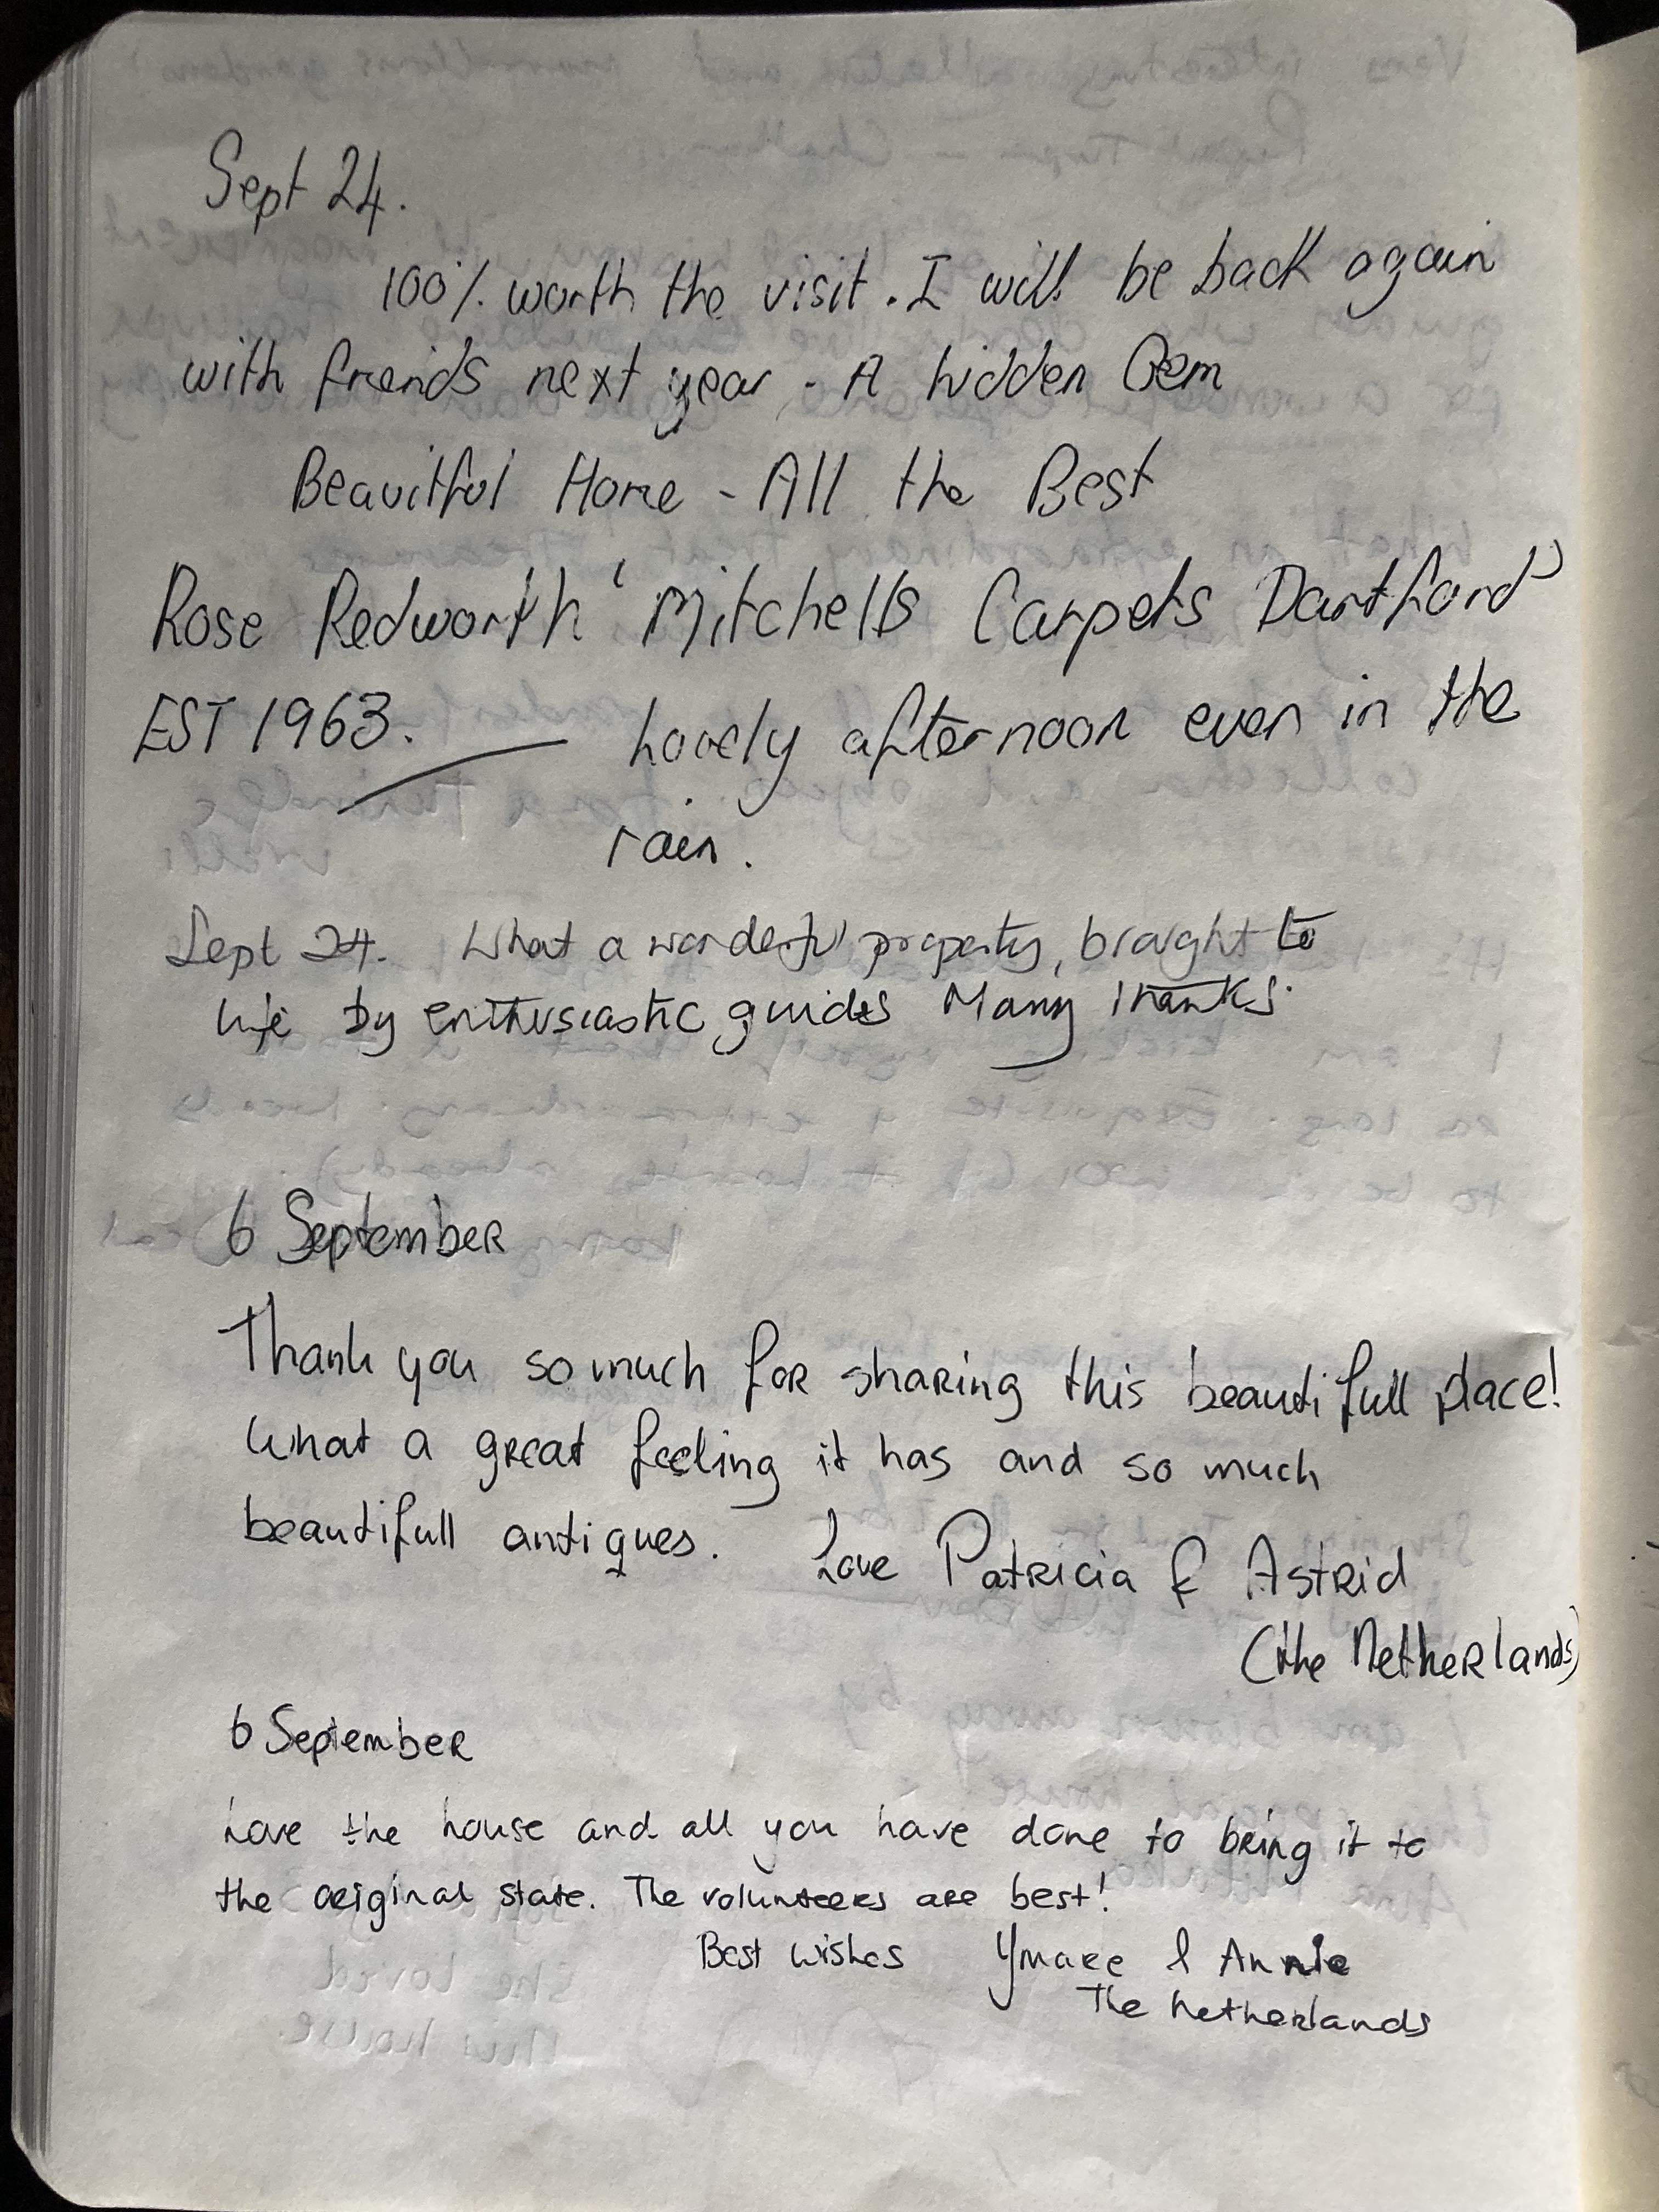 Sept 24.
100% worth the visit. I will be back again
with friends next year - A hidden Gem
Beauitful Home - All the Best
Rose Redworth 'Mitchells Carpets Dartford'
EST 1963.
Lovely afternoon even in the
rain.
Sept 24. What a wonderful property, brought to
life by enthusiastic guides Many thanks.
6 September
Thank you so much for sharing this beautifull place!
What a great feeling it has and so much
beautifull antiques.
Love Patricia & Astrid
(the Netherlands)
6 September
Love the house and all you have done to bring it to
the original state. The volunteers are best!
Best wishes Ymare & Annie
The Netherlands